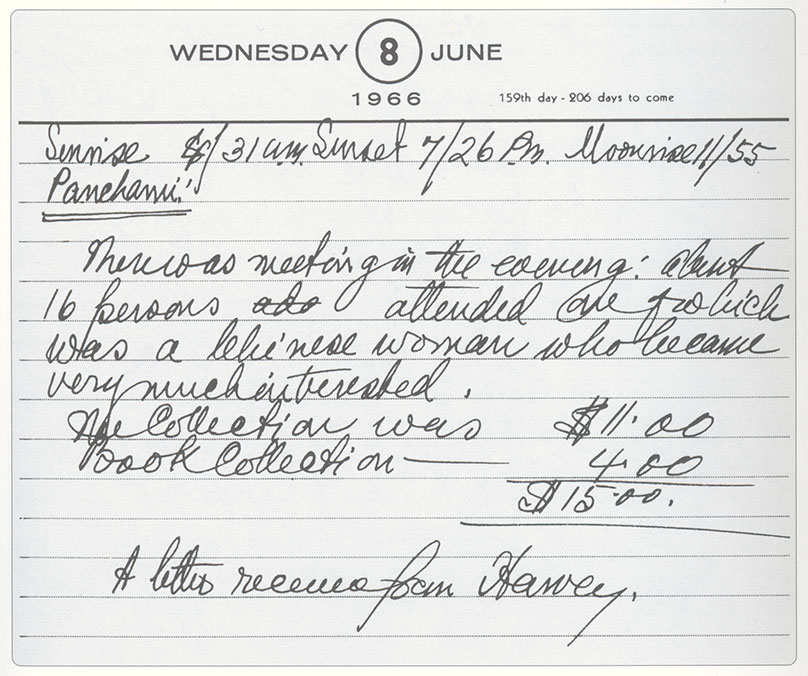 WEDNESDAY 8 JUNE
1966 159th day - 206 days to come
Sunrise /31 a.m. Sunset 7/26 P.m. Moonrise 11/55
Panchami.
There was meeting in the evening: about
16 persons attended one of which
was a Chinese woman who became
very much interested.
The Collection was $11.00
Book Collection — 4.00
$15.00.
A letter received from Harvey.